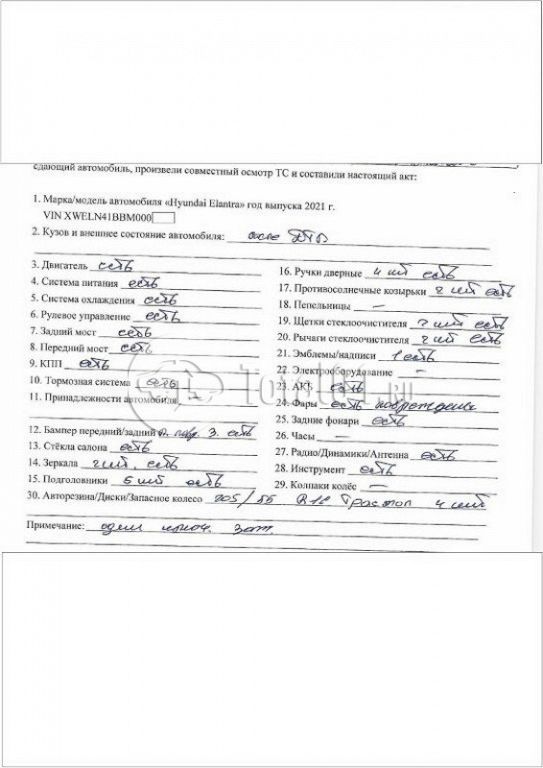 сдающий автомобиль, произвели совместный осмотр ТС и составили настоящий акт:
1. Марка/модель автомобиля «Hyundai Elantra» год выпуска 2021 г.
VIN XWELN41BBM000
2. Кузов и внешнее состояние автомобиля: после ДТП
3. Двигатель есть
4. Система питания есть
5. Система охлаждения есть
6. Рулевое управление есть
7. Задний мост есть
8. Передний мост есть
9. КПП есть
10. Тормозная система есть
11. Принадлежности автомобиля
12. Бампер передний/задний п. повр. З. есть
13. Стёкла салона есть
14. Зеркала 2 шт. есть
15. Подголовники 5 шт есть
16. Ручки дверные 4 шт есть
17. Противосолнечные козырьки 2 шт есть
18. Пепельницы —
19. Щетки стеклоочистителя 2 шт есть
20. Рычаги стеклоочистителя 2 шт есть
21. Эмблемы/надписи 1 есть
22. Электрооборудование —
23. АКБ есть
24. Фары есть повреждены
25. Задние фонари есть
26. Часы —
27. Радио/Динамики/Антенна есть
28. Инструмент есть
29. Колпаки колёс —
30. Авторезина/Диски/Запасное колесо 205/55 4 шт
Примечание: один ключ. зап.